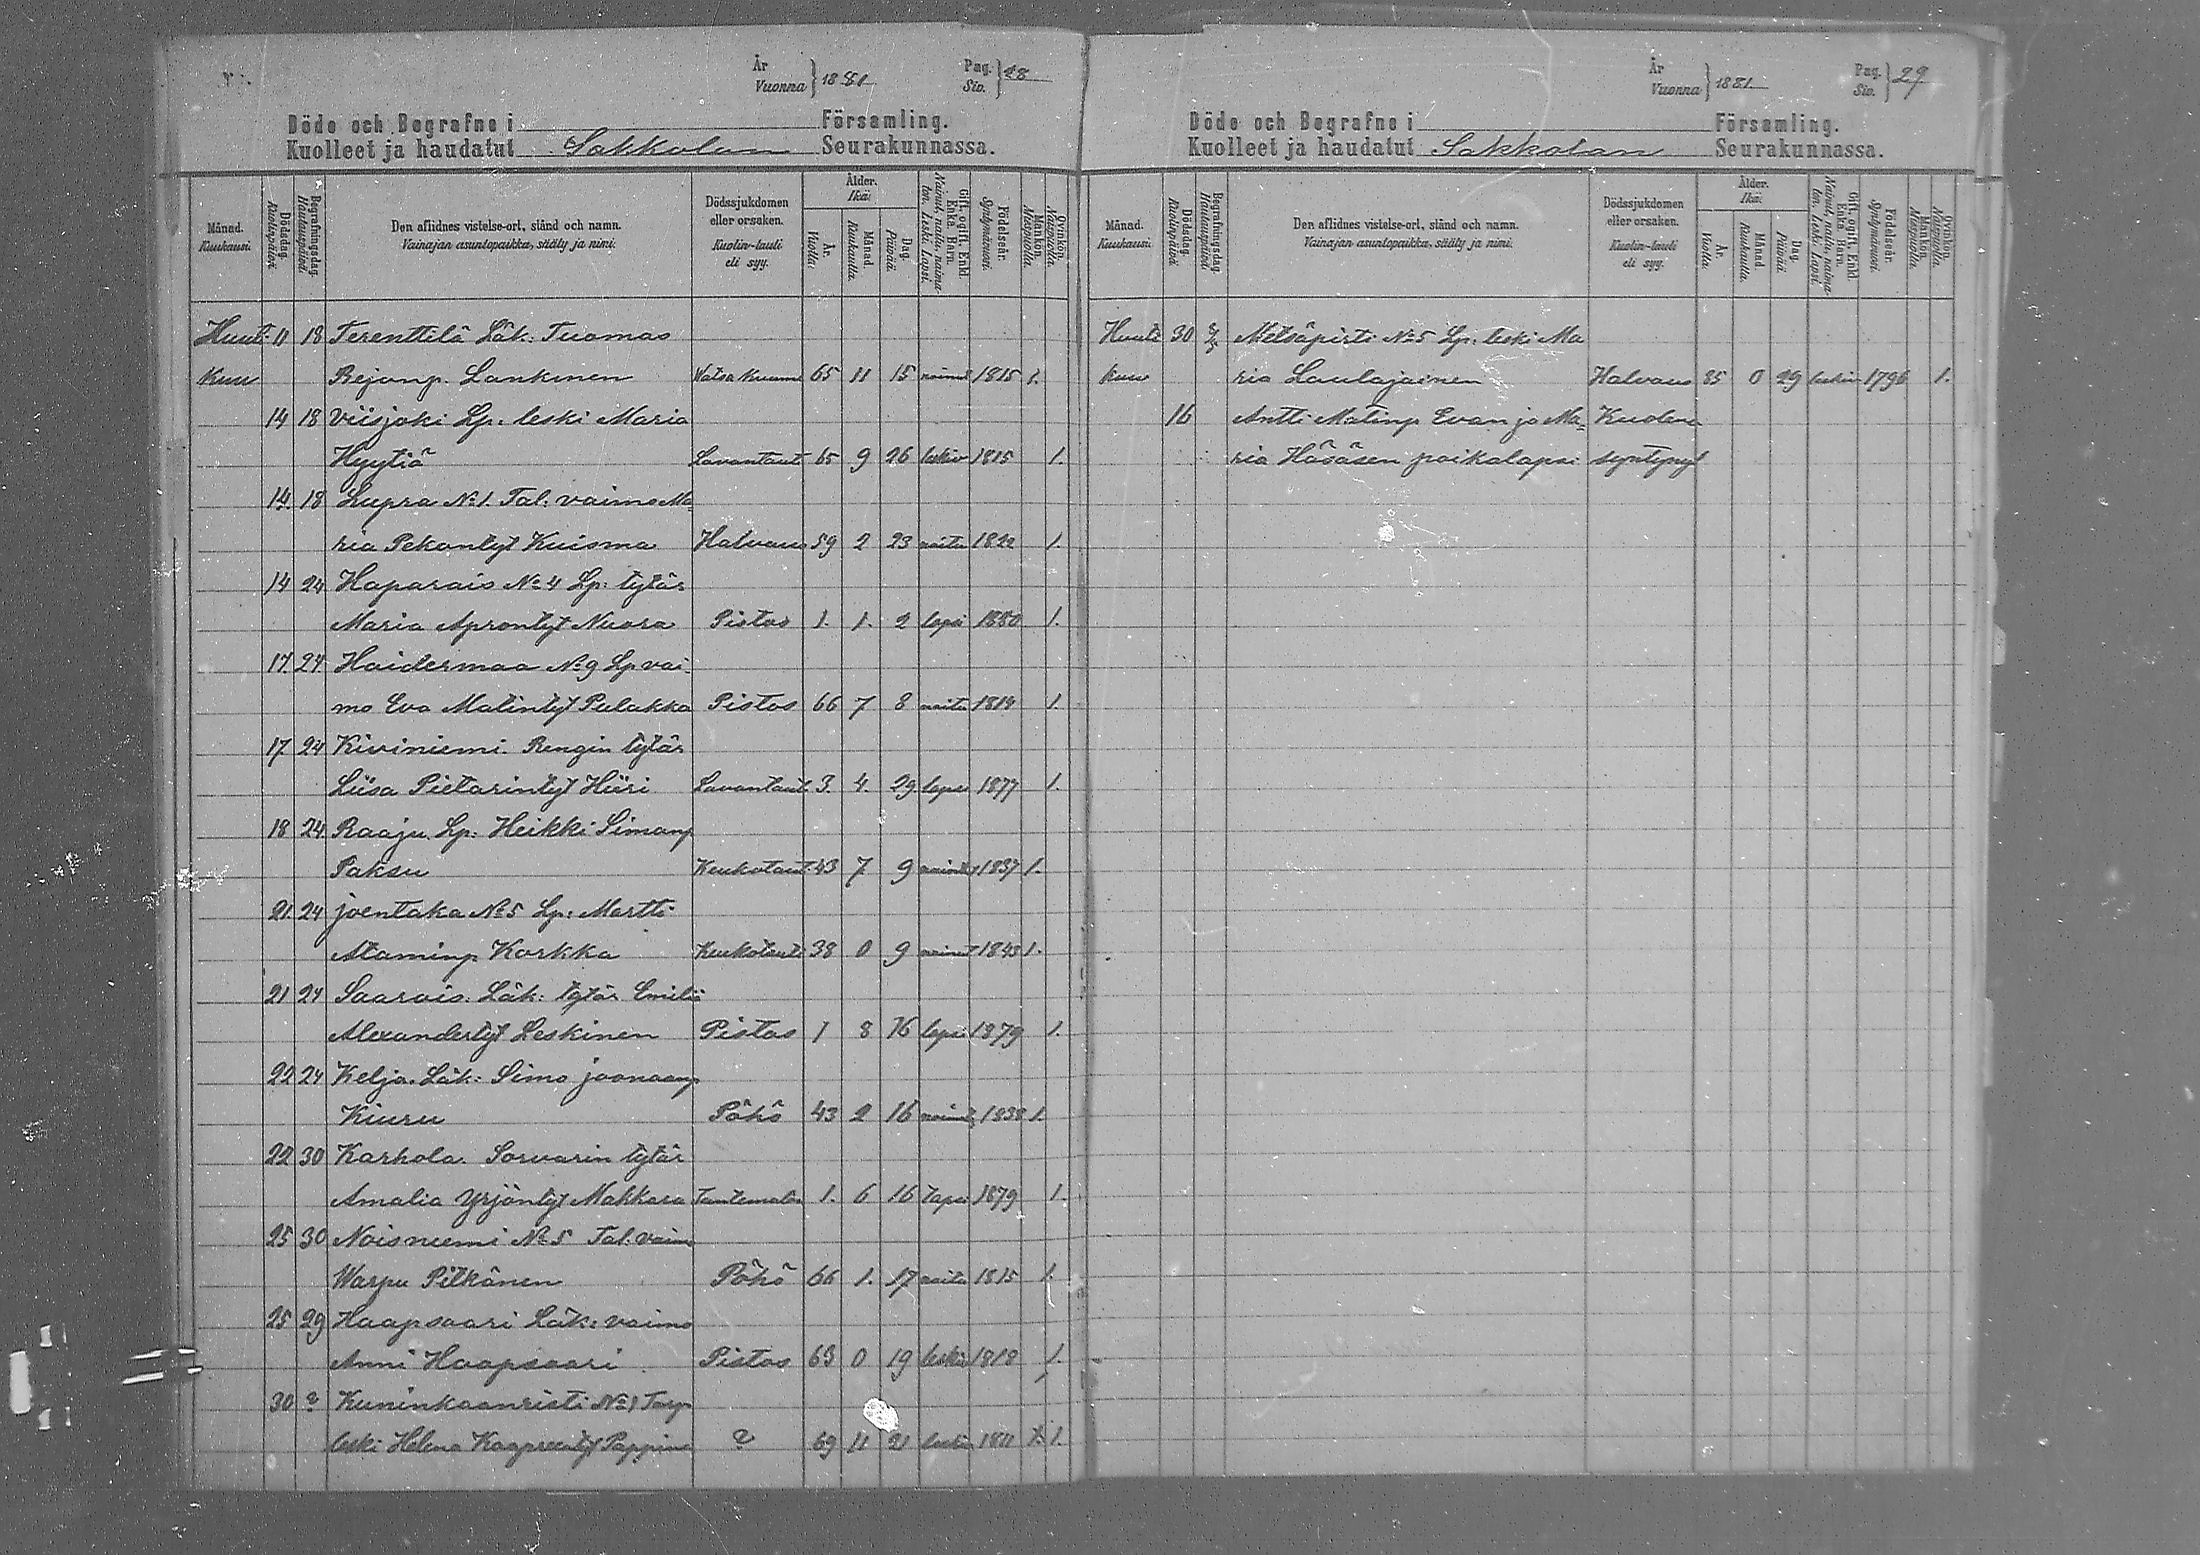 År
Vuonna } 1881
Pag.
Siv. } 28
Döde och Begrafne i Församling.
Kuolleet ja haudatut Sakkolan Seurakunnassa.
Månad. Kuukausi.
Dödsdag. Kuolinpäivä.
Begrafningsdag. Hautauspäivä.
Den aflidnes vistelse-ort, stånd och namn.
Vainajan asuntopaikka, sääty ja nimi.
Dödssjukdomen eller orsaken.
Kuolin-tauti eli syy.
Ålder. Ikä:
År. Vuotta.
Månad. Kuukautta.
Dag. Päivää.
Gift, ogift, Enkl. Enka. Barn.
Nainut, naitu, naimaton. Leski. Lapsi.
Födelseår. Syntymävuosi.
Mankön. Miespuolia.
Qvinkön. Naispuolia.
Huuti 11 18 Terenttilä Läk: Tuomas
Kuu Rejonp. Lankinen Watsa kuume 65 11 15 nainut 1815 1.
14 18 Viisjoki Lp. leski Maria
Hyytiä Lavantauti 65 9 26 leskiv 1815 1.
14 18 Lupra No 1. Tal. vaimo Ma
ria Pekantyt Kuisma Halvaus 59 2 23 naitu 1822 1.
14 24 Haparais No 4 Lp: tytär
Maria Aprontyt Nuora Pistos 1. 1. 2 lapsi 1880 1.
17 24 Haidermaa No 9 Lp vai
mo Eva Matintyt Pulakka Pistos 66 7 8 naitu 1814 1.
17 24 Kiviniemi. Rengin tytär
Liisa Pietarintyt Hiiri Lavantaut 3. 4. 29 lapsi 1877 1.
18 24 Raaju Lp: Heikki Simonp
Paksu Keukotaut 43 7 9 nainut 1837 1.
21 24 joentaka No 5 Lp: Martti
Ataminp. Korkka Keukotauti 38 0 9 nainut 1843 1.
21 24 Saarois. Läk: tytär Emilia
Alexandertyt Leskinen Pistos 1 8 16 lapsi 1879 1.
22 24 Kelja. Läk: Simo joonaanp
Kiuru Pöhö 43 2 16 nainut 1838 1.
22 30 Karhola. Sorvarin tytär
Amalia Yrjöntyt Makkara 1. 6 16 lapsi 1879 1.
25 30 Noisniemi No 5 Tal. vaimo
Warpu Pitkänen Pöhö 66 1. 17 naitu 1815 1.
25 29 Haapsaari Läk: vaimo
Anni Haapsaari Pistos 63 0 19 leski 1818 1.
30 ? Kuninkaanristi No 1 Torp
leski Helena Kaapreentyt Pappine ? 69 11 21 leski 1811 1.
År
Vuonna } 1881.
Pag.
Siv. } 29
Döde och Begrafne i Församling.
Kuolleet ja haudatut Sakkolan Seurakunnassa.
Månad. Kuukausi.
Dödsdag. Kuolinpäivä.
Begrafningsdag. Hautauspäivä.
Den aflidnes vistelse-ort, stånd och namn.
Vainajan asuntopaikka, sääty ja nimi.
Dödssjukdomen eller orsaken.
Kuolin-tauti eli syy.
Ålder. Ikä:
År. Vuotta.
Månad. Kuukautta.
Dag. Päivää.
Gift, ogift, Enkl. Enka. Barn.
Nainut, naitu, naimaton. Leski. Lapsi.
Födelseår. Syntymävuosi.
Mankön. Miespuolia.
Qvinkön. Naispuolia.
Huuti 30 Metsäpirti No 5 Lp: leski Ma
kuu ria Laulajainen Halvaus 85 0 29 leski 1796 1.
16 Antti Matinp Evan ja Ma= Kuolena
ria Häsäsen poikalapsi syntynyt